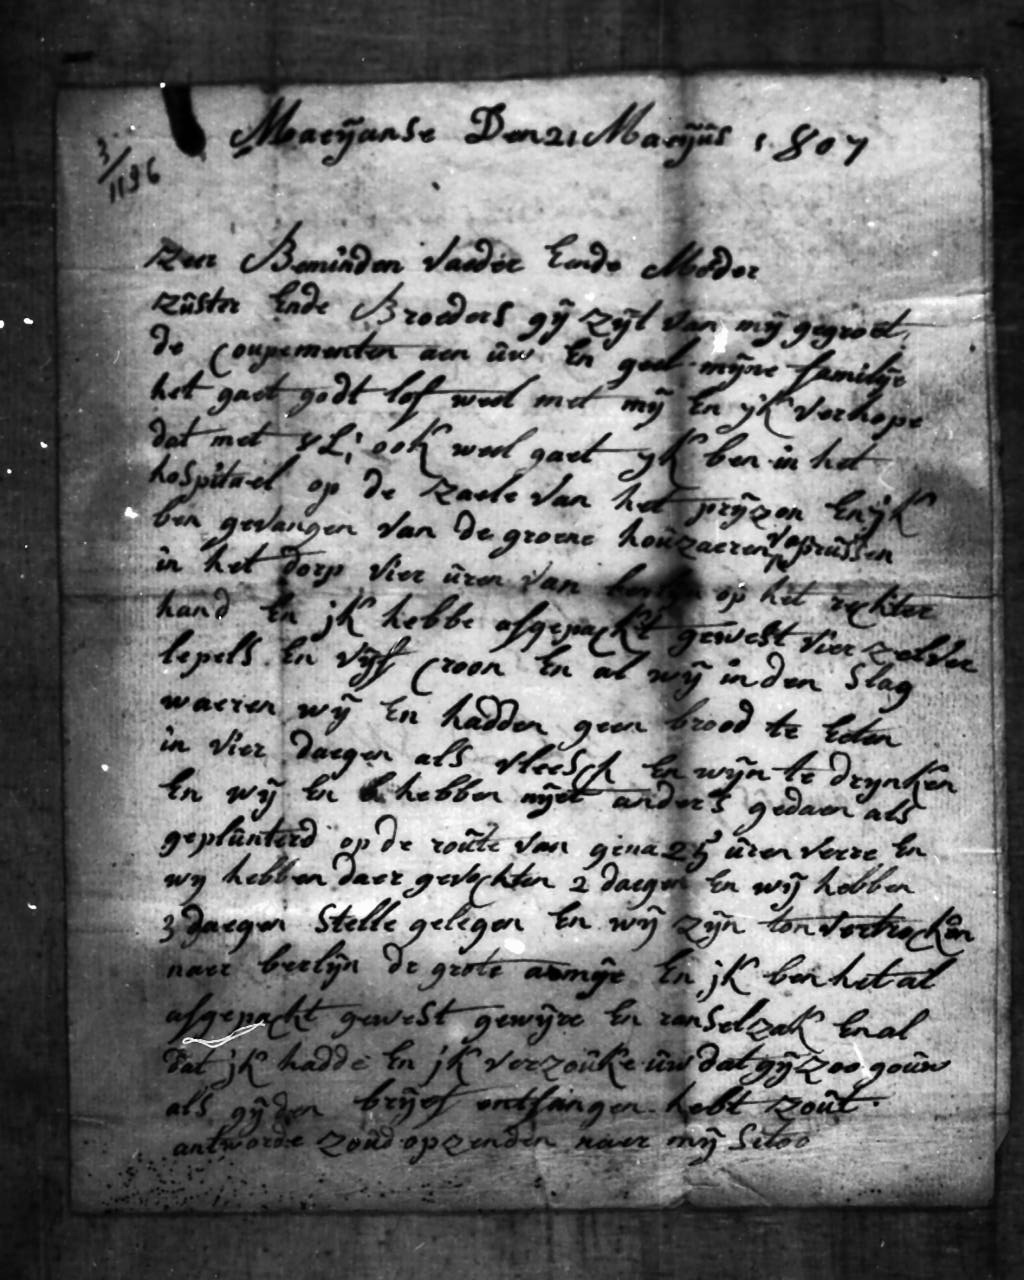 Maeÿanse Den 21 Maeÿûs 1807
3/1196
Zeer Beminden Vaeder Ende Moder
Zûster Ende Broeders gÿ Zÿt van mÿ gegroet,
de Coupementen aen ûw En geel mÿne familÿe
het gaet godt lof weel met mÿ En ÿk verhope
dat met vL: ook weel gaet ÿk ben in het
hospitael op de Zaele van het prÿzon En ÿk
ben gevangen van de groene houzaeren va prûssen
in het dorp vier ûren van berlÿn op het rechter
hand En jk hebbe afgepackt gewest vier zelver
lepels En vÿf Croon En al wÿ in den Slag
waeren wÿ En hadden geen brood te Eeten
in vier daegen als vleesch En wÿn te drÿnken
En wÿ En hebben nÿet anders gedaen als
geplûnterd op de roûte van gena 25 ûren verre En
wy hebben daer gevochten 2 daegen En wÿ hebben
3 daegen Stelle gelegen En wÿ zÿn ton vertrocken
naer berlÿn de grote armÿe En jk ben het al
afgepackt gewest gewÿre En ranselzak En al
dat jk hadde En jk verzoûke ûw dat gÿ zoo goûw
als gÿ den brÿef ontfangen hebt zoût
antworde zoûd op zenden naer mÿ Sitoo